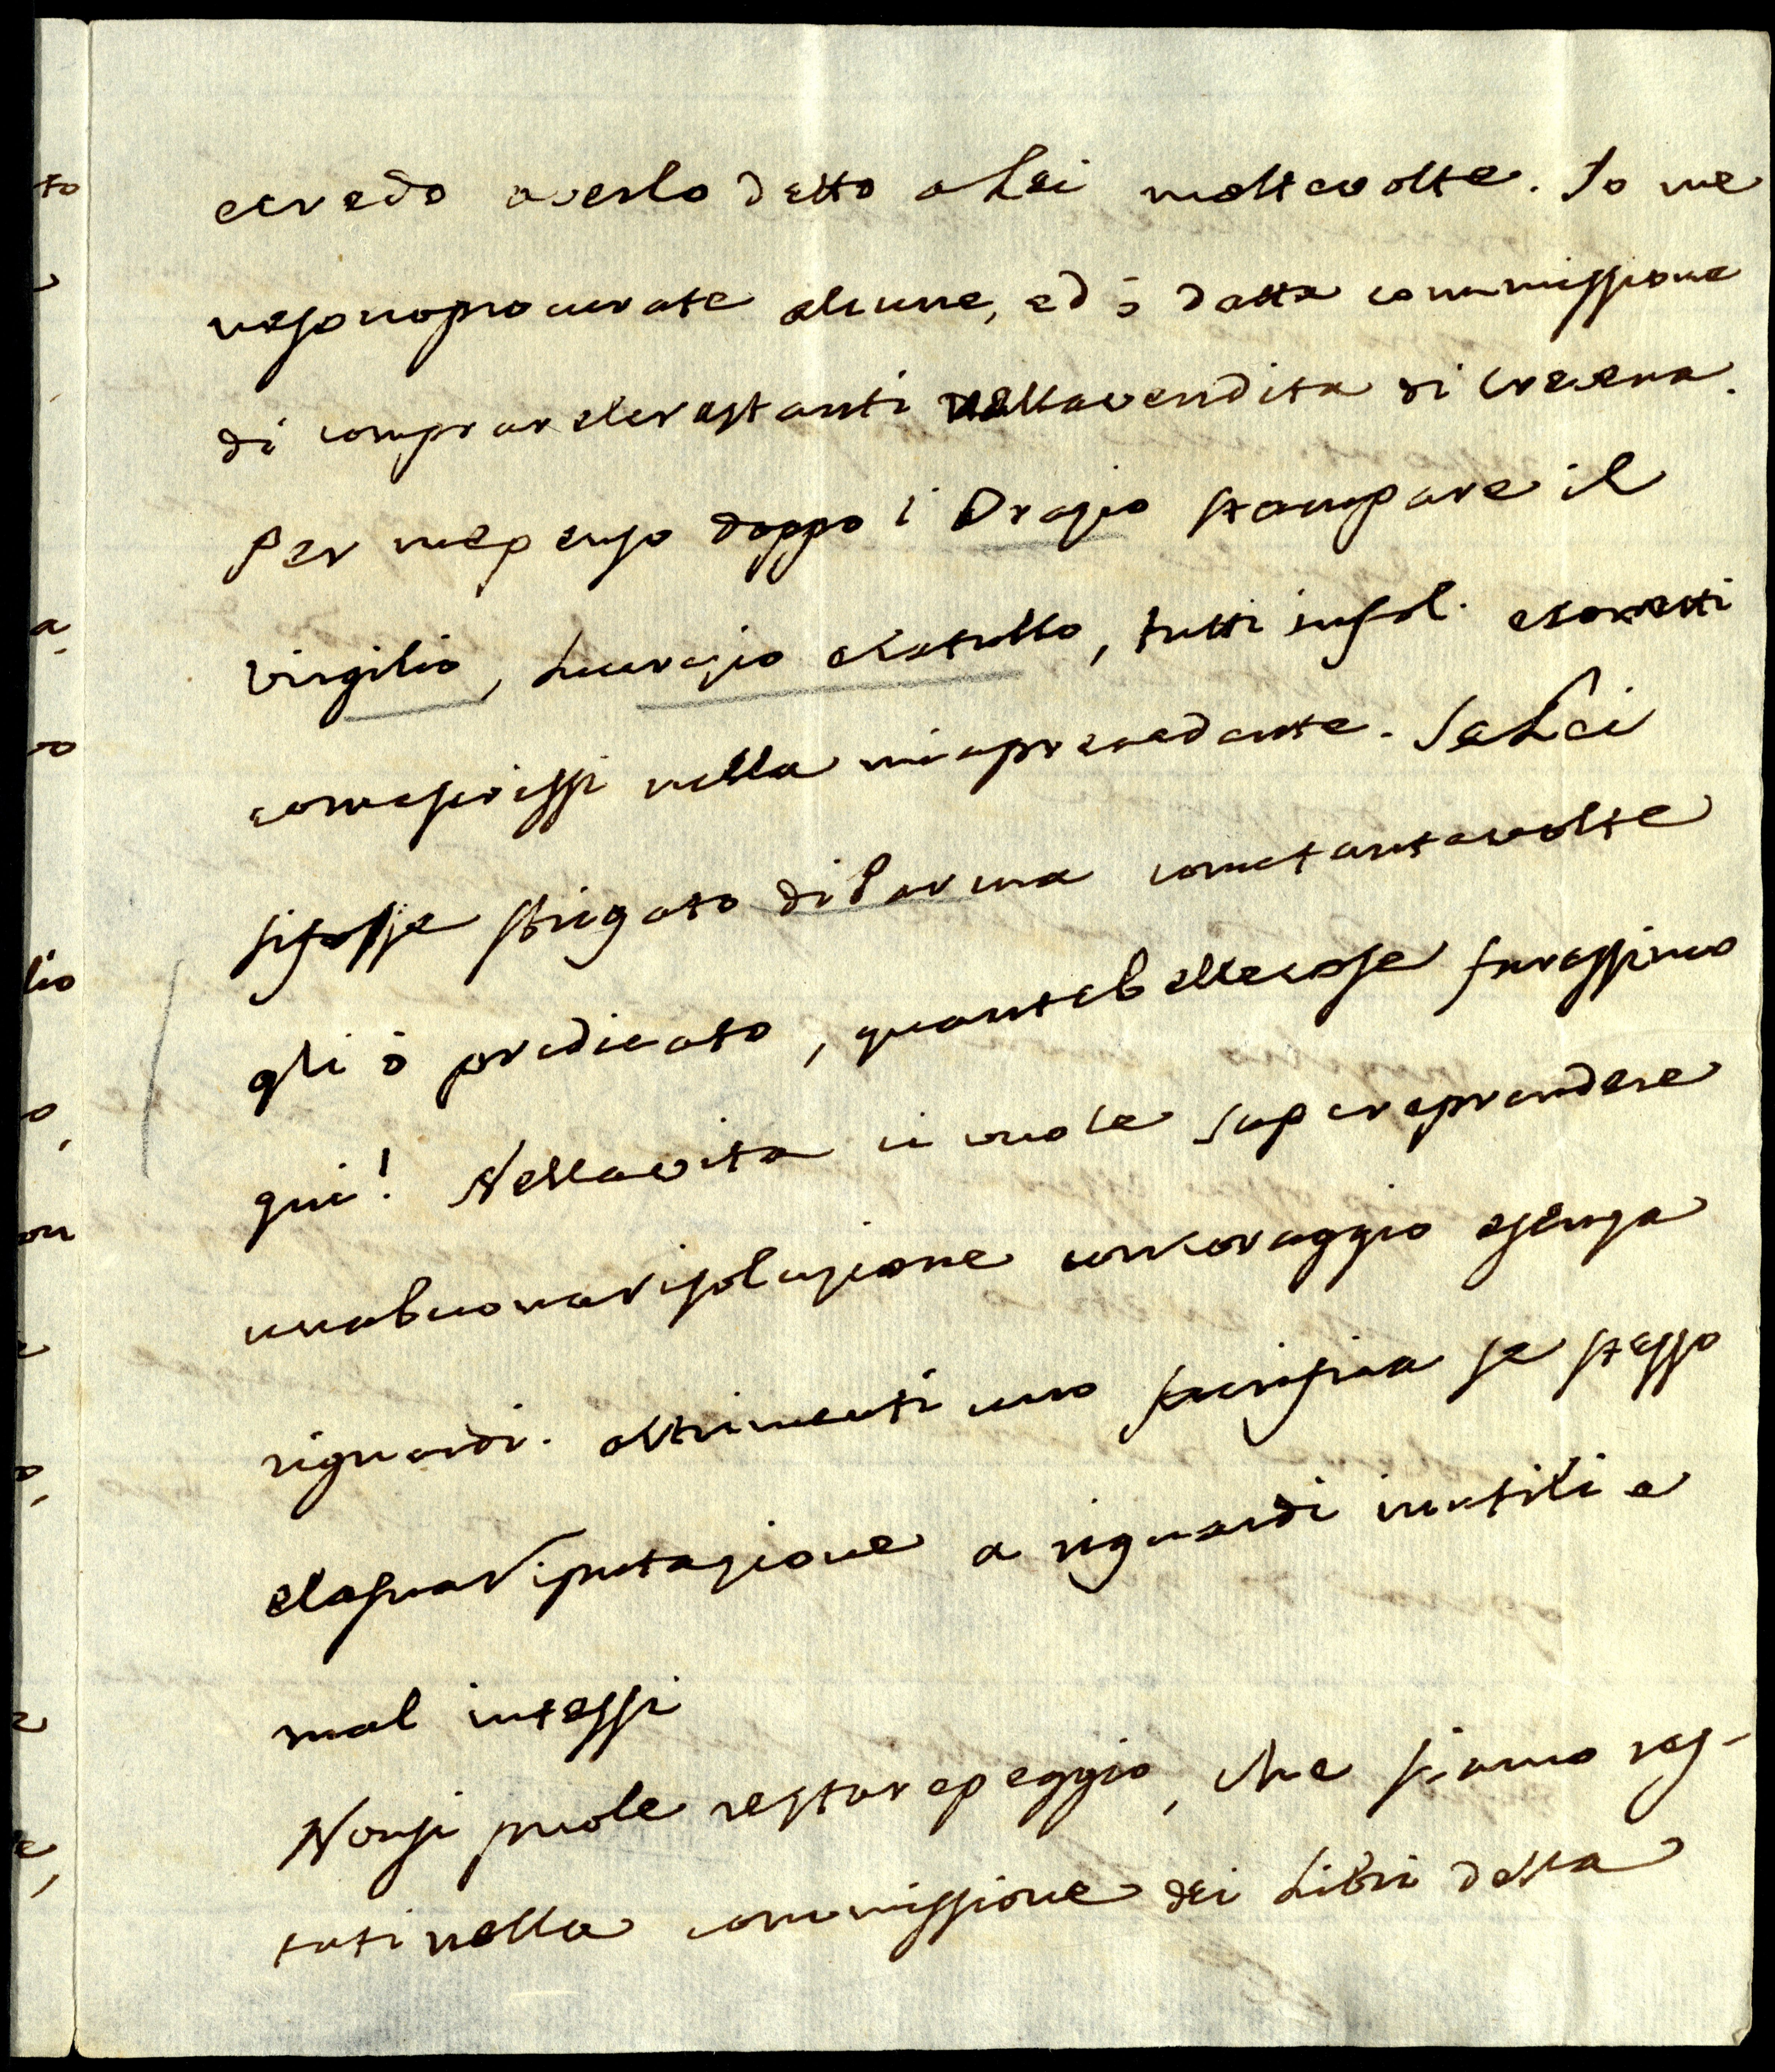 to
ecredo averlo detto a Lei molte volte. Io me
ne sono procurate alcune, ed ò datta commissione
di comprar le restanti nella vendita di Crevena.
Per me penso doppo i Orazio stampare il
a
Virgilio, Lucrezio e Catullo, tutti in fol. e coretti
vo
come scrissi nella mia precedente. Se Lei
si fosse sbrigato di Parma come tante volte
lio
gli ò predicato, quante belle cose faressimo
o,
qui! Nella vita ci vuole saper e prendere
on
una buona risoluzione con coraggio e senza
e
riguardi. altrimenti uno sacrifica se stesso
o,
e la sua riputazione a riguardi inutili e
e
mal intessi
Non si puole restar e peggio, che siamo res-
e,
tati nella commissione dei Libri della